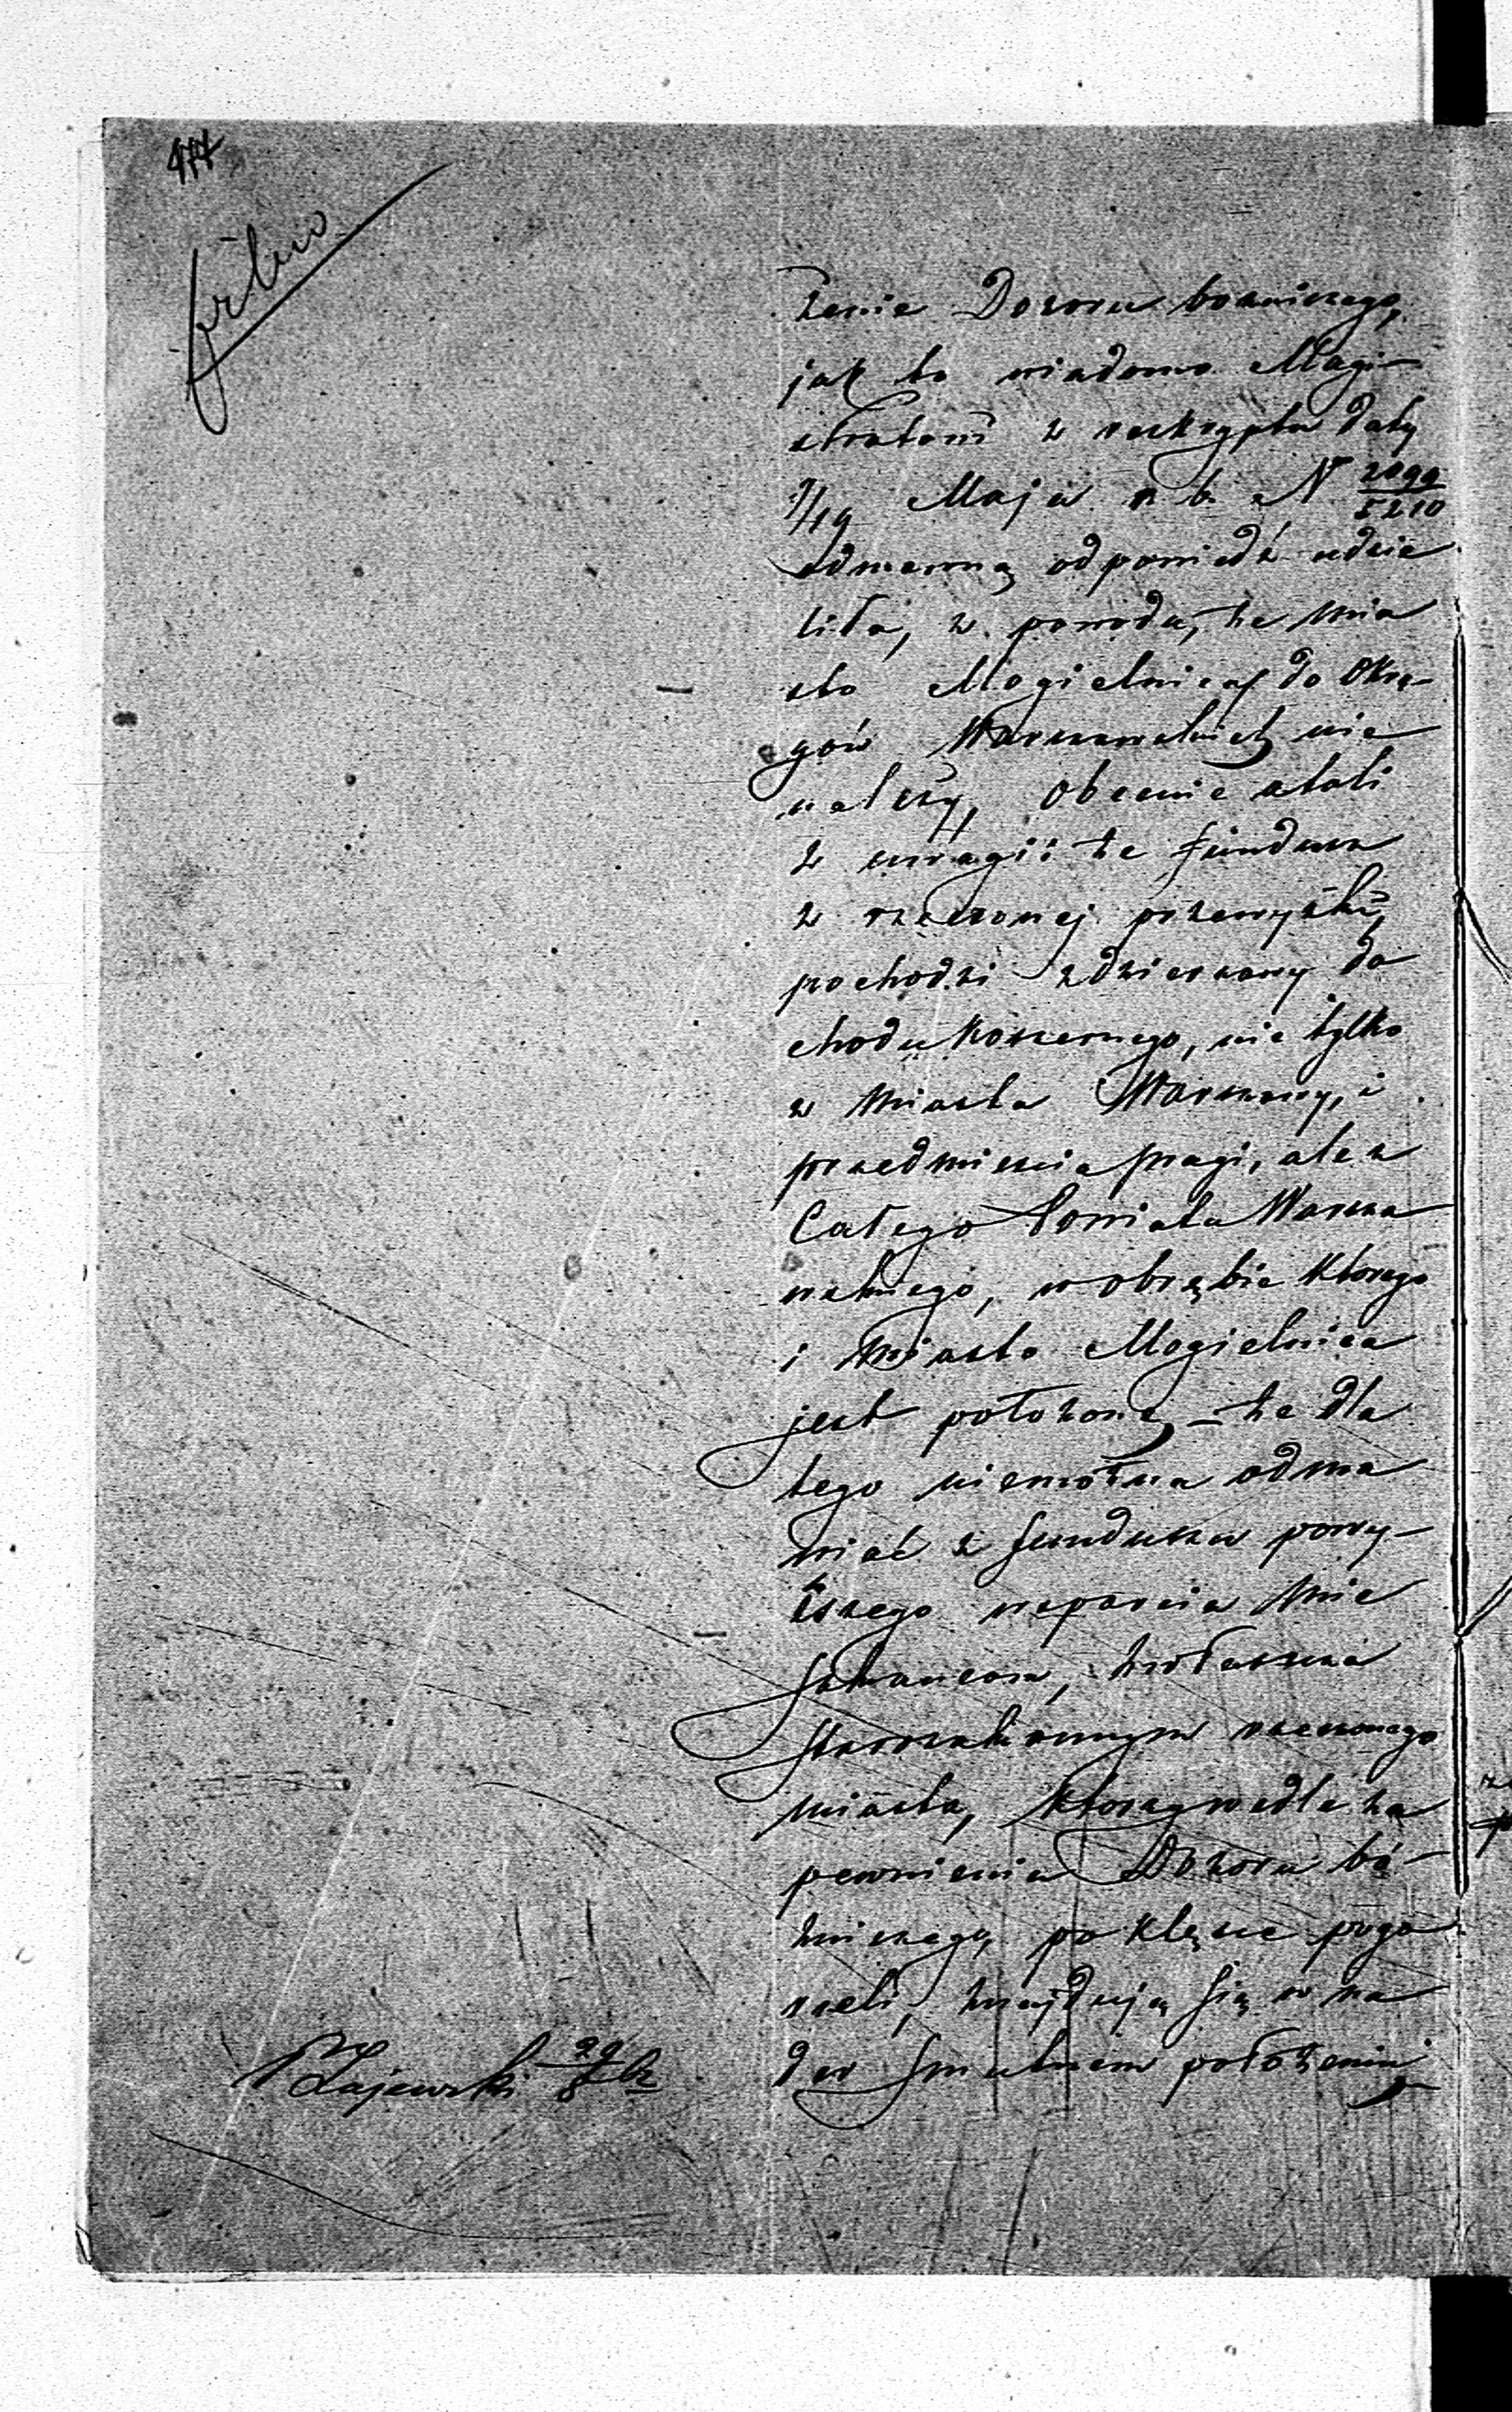 pilno
żenie Dozoru bożniczego,
jak to wiadomo Magi-
stratowi z reskryptu daty
7/19 Maja r. b. N 2099/5210
odmowną odpowiedź udzie
liła, z powodu, że mia
sto Mogielnica do Okrę-
gów Warszawskich nie
należy, Obecnie atoli
z uwagi: że fundusz
z rzeczonej przewyżki,
pochodzi z dzierżawy do
chodu koszernego, nie tylko
z Miasta Warszawy, i
przedmieścia Pragi, ale z
Całego Powiatu Warsza
wskiego, w obrębie którego
i Miasto Mogielnica
jest położone, – że dla
tego niemożna odma
wiać z funduszu powy-
ższego wsparcia Mie
szkańcom, zwłaszcza
starozakonnym rzeczonego
miasta, którzy wedle za
pewnienia Dozoru bó-
żniczego, po klęsce pogo
rzeli, znajdują się w na
der smutnem położeniu,
Zajewski 29/8